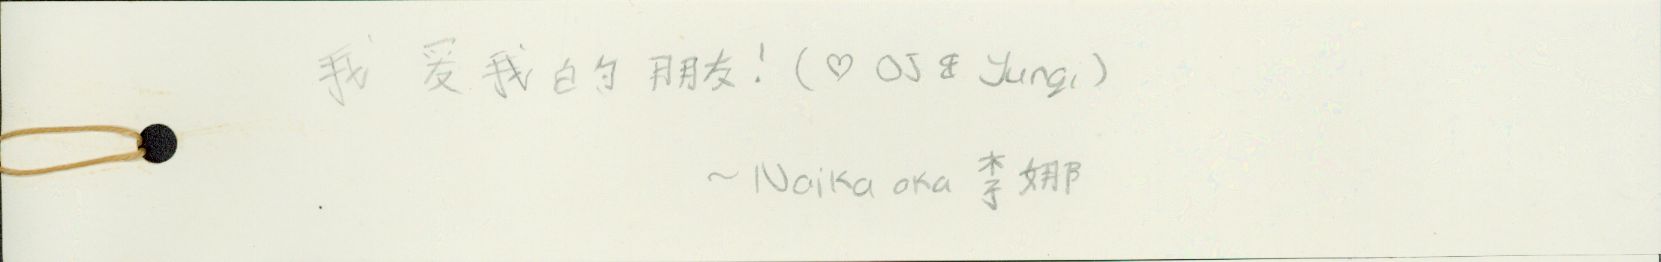 我 爱 我 的 朋友! (♡ OJ & Yungi)
~ Naika aka 李 娜